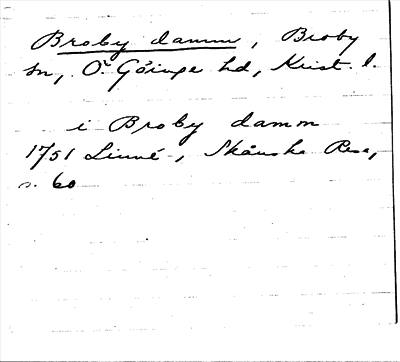 Broby damm, Broby
sn, Ö. Göinge hd, Krist. l.
i Broby damm
1751 Linné, Skånska Resa,
s. 60